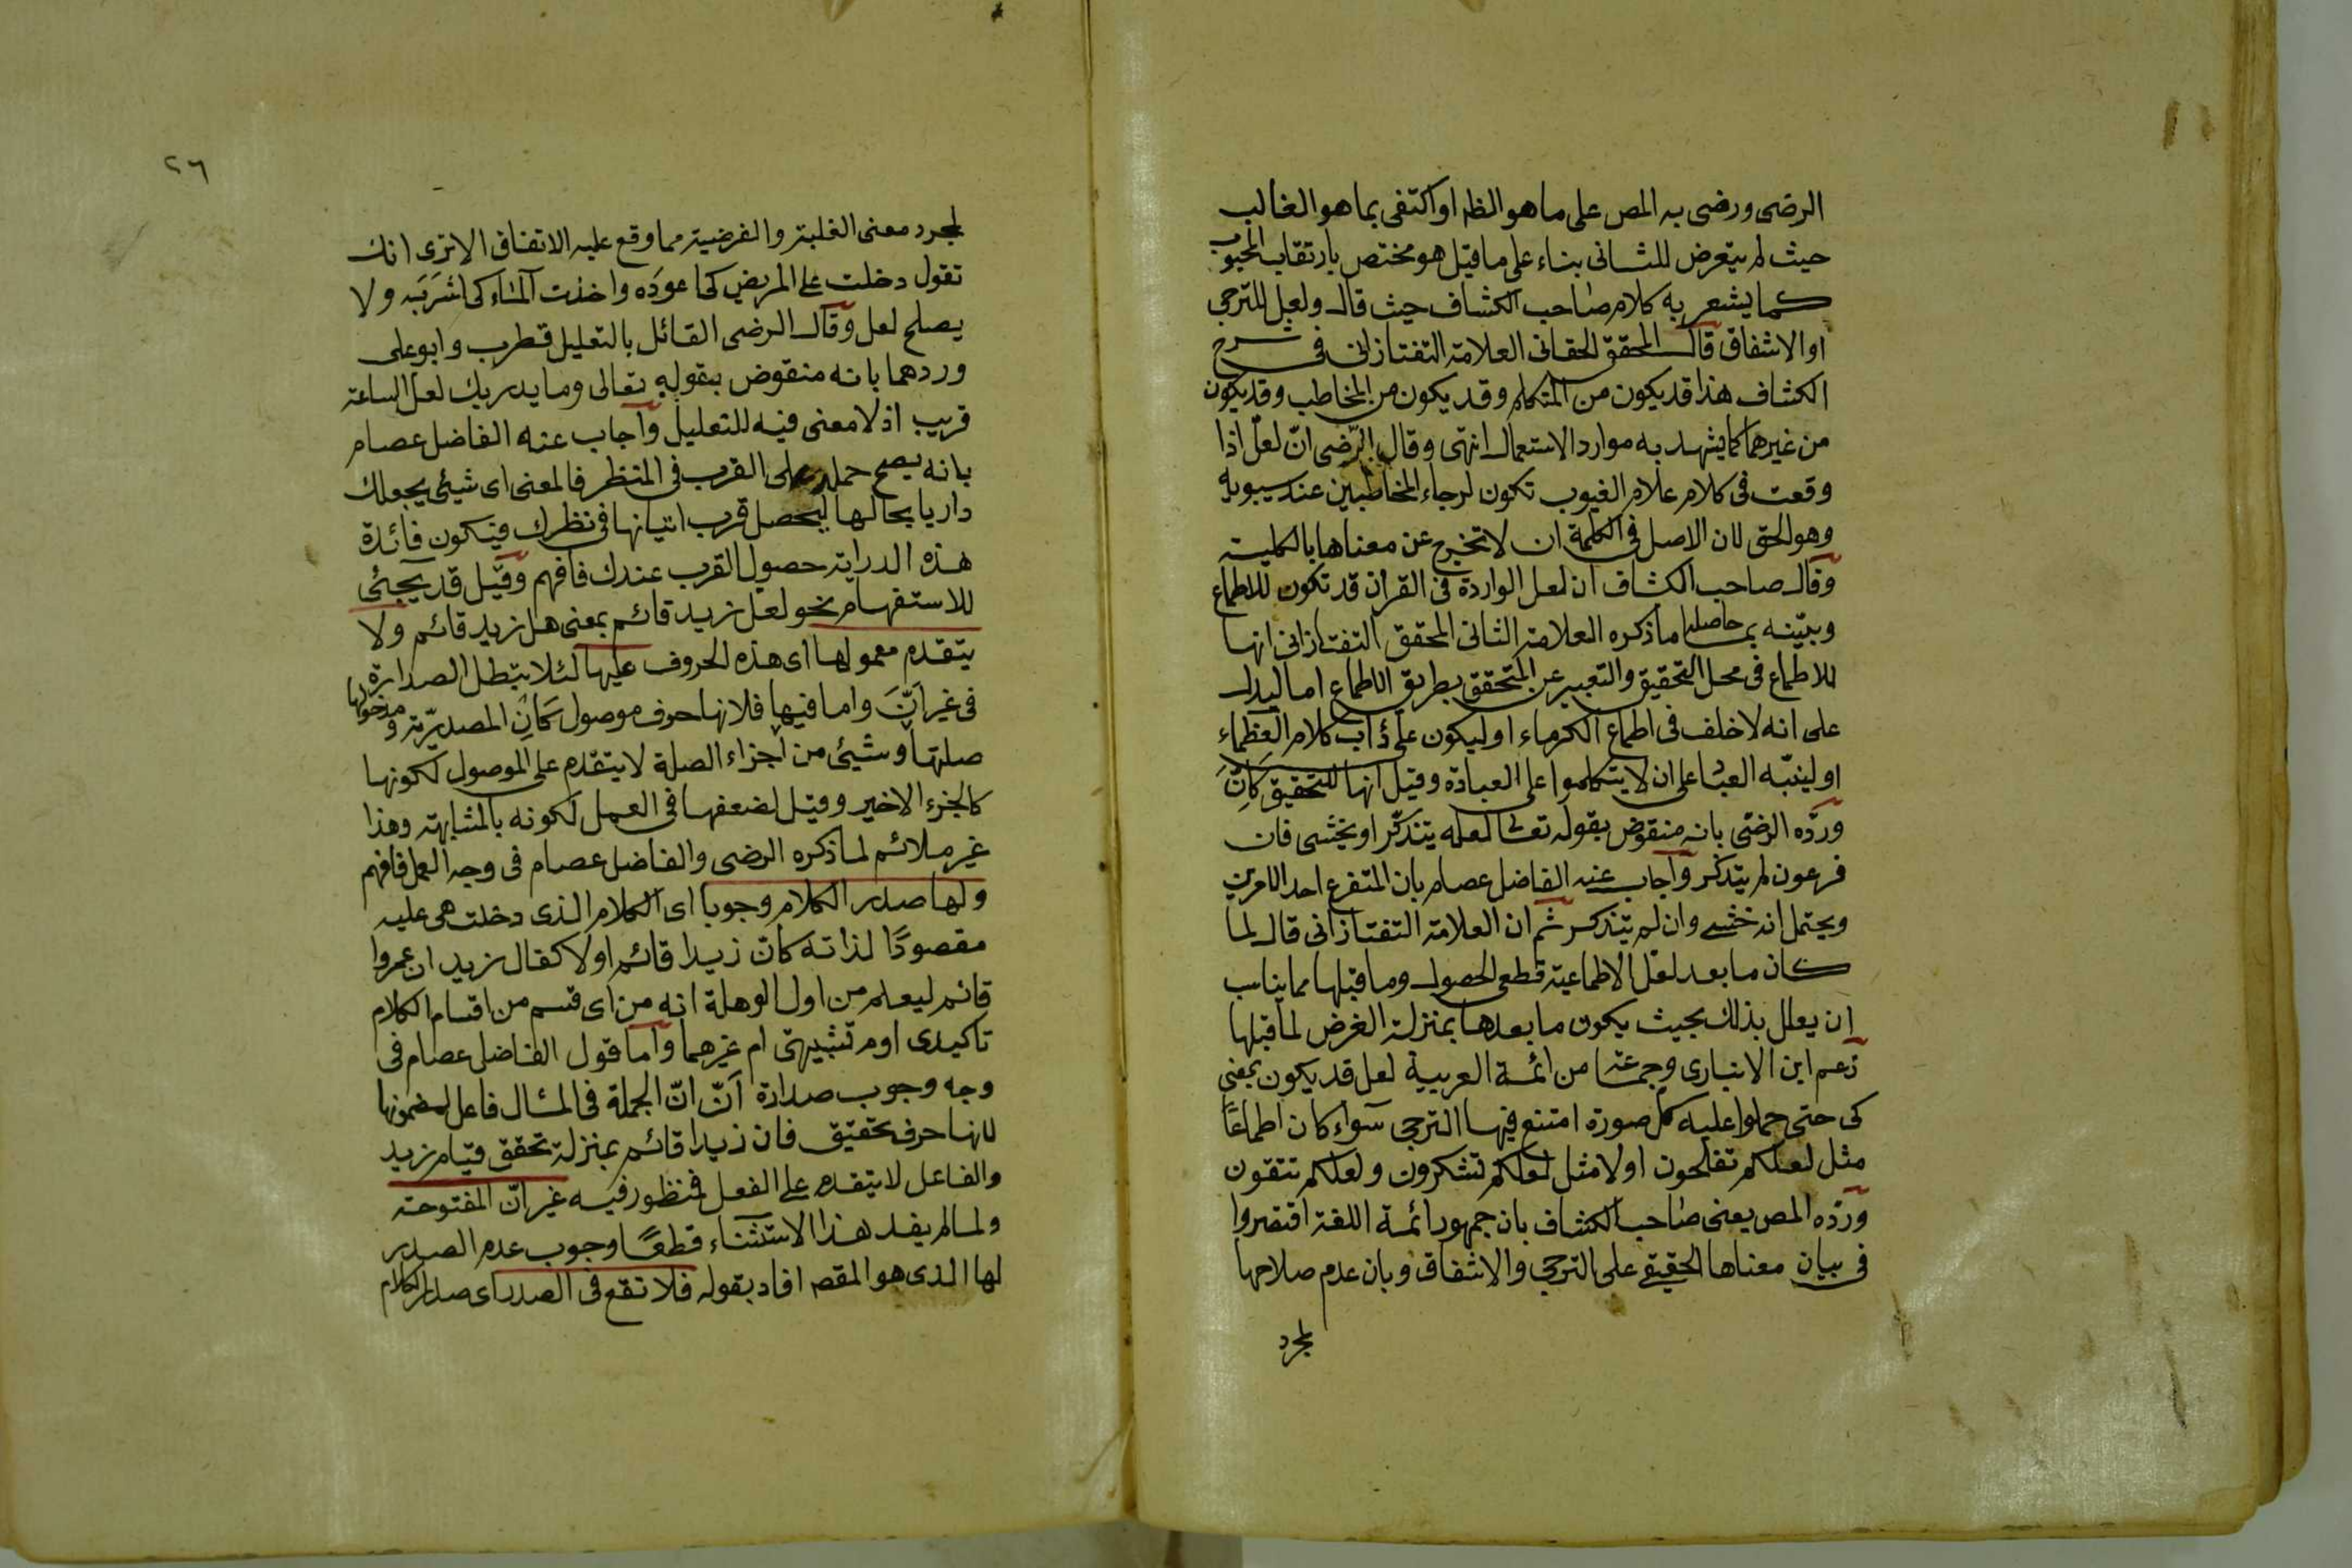 الرضى ورضى به المص على ما هو الظ او اكتفى بما هو الغالب
حيث لم يتعرض للثانى بناء على ما قيل هو مختص بارتقاب المحبوب
كما يشعر به كلام صاحب الكشاف حيث قال ولعل للترجى
او الاشفاق قال المحقق الحقانى العلامة التفتازانى فى شرح
الكشاف هذا قد يكون من المتكلم وقد يكون من المخاطب وقد يكون
من غيرهما كما يشهد به موارد الاستعمال انتهى وقال الرضى انّ لعلّ اذا
وقعت فى كلام علام الغيوب تكون لرجاء المخاطبين عند سيبويه
وهو الحق لان الاصل فى الكلمة ان لا تخرج عن معناها بالكلية
وقال صاحب الكشاف ان لعل الواردة فى القرآن قد تكون للاطماع
وبيّنه بما حاصله ما ذكره العلامة الثانى المحقق التفتازانى انها
للاطماع فى محل التحقيق والتعبير عن المتحقق بطريق الاطماع اما ليدل
على انه لا خلف فى اطماع الكرماء او ليكون على دأب كلام العظماء
او لينبّه العباد على ان لا يتكلموا على العبادة وقيل انها للتحقيق كانّ
وردّه الرضى بانه منقوض بقوله تعالى لعله يتذكّر او يخشى فان
فرعون لم يتذكر واجاب عنه الفاضل عصام بان المتفرع احد الامرين
ويحتمل انه خشى وان لم يتذكر ثم ان العلامة التفتازانى قال لما
كان ما بعد لعل الاطماعية قطعى الحصول وما قبلها مما يناسب
ان يعلل بذلك بحيث يكون ما بعدها بمنزلة الغرض لما قبلها
زعم ابن الانبارى وجماعة من ائمة العربية لعل قد يكون بمعنى
كى حتى حملوا عليه كل صورة امتنع فيها الترجى سواء كان اطماعًا
مثل لعلكم تفلحون اولا مثل لعلكم تشكرون ولعلكم تتقون
وردّه المص يعنى صاحب الكشاف بان جمهور ائمة اللغة اقتصروا
فى بيان معناها الحقيقى على الترجى والاشفاق وبان عدم صلاحها
لمجرد
٢٦
لمجرد معنى الغلبة والفرضية مما وقع عليه الاتفاق الا ترى انك
تقول دخلت على المريض كى اعوده واخذت الماء كى اشربه ولا
يصلح لعل وقال الرضى القائل بالتعليل قطرب وابو على
وردهما بانه منقوض بقوله تعالى وما يدريك لعل الساعة
قريب اذ لا معنى فيه للتعليل واجاب عنه الفاضل عصام
بانه يصح حمله على القرب فى المنتظر فالمعنى اى شيئ يجعلك
داريا بحالها ليحصل قرب اتيانها فى نظرك فيكون فائدة
هذه الدراية حصول القرب عندك فافهم وقيل قد يجيئ
للاستفهام نحو لعل زيد قائم بمعنى هل زيد قائم ولا
يتقدم معمولها اى هذه الحروف عليها لئلا تبطل الصدارة
فى غير انّ واما فيها فلانها حرف موصول كان المصدرية و مدخولها
صلتها وشيئ من اجزاء الصلة لا يتقدم على الموصول لكونها
كالجزء الاخير وقيل لضعفها فى العمل لكونه بالمشابهة وهذا
غير ملائم لما ذكره الرضى والفاضل عصام فى وجه العمل فافهم
ولها صدر الكلام وجوبا اى الكلام الذى دخلت هى عليه
مقصودًا لذاته كان زيدا قائم اولا كقال زيد ان عمروا
قائم ليعلم من اول الوهلة انه من اى قسم من اقسام الكلام
تاكيدى اوم تشبيهى ام غيرهما واما قول الفاضل عصام فى
وجه وجوب صدارة انّ انّ الجملة فى المثال فاعل لمضمونها
لانها حرف تحقيق فان زيدا قائم بمنزلة تحقق قيام زيد
والفاعل لا يتقدم على الفعل فمنظور فيه غير انّ المفتوحة
ولما لم يفد هذا الاستثناء قطعًا وجوب عدم الصدر
لها الذى هو المقص افاد بقوله فلا تقع فى الصدر اى صدر الكلام